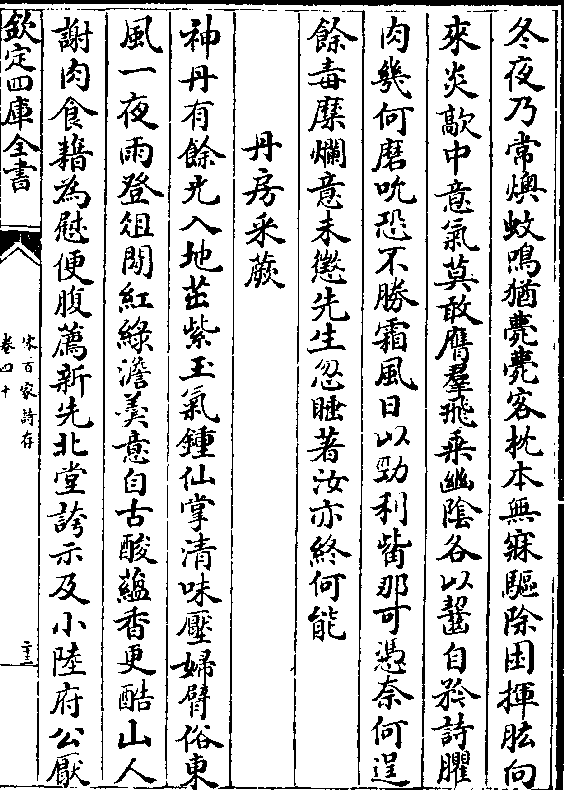 冬夜乃常燠蚊鳴猶薨薨客枕本無寐驅除困揮肱向
來炎歊中意氣莫敢膺羣飛乘幽陰各以齧自矜詩臞
肉幾何磨吮恐不勝霜風日以勁利觜那可憑奈何逞
餘毒糜爛意未懲先生忽睡著汝亦終何能
丹房采蕨
神丹有餘光入地茁紫玉氣鍾仙掌清味壓婦臂俗東
風一夜雨登俎鬭紅綠澹羮意自古酸蘊香更酷山人
謝肉食藉為慰便腹薦新先北堂誇示及小陸府公厭
欽定四庫全書
宋百家詩存
卷四十
二十三